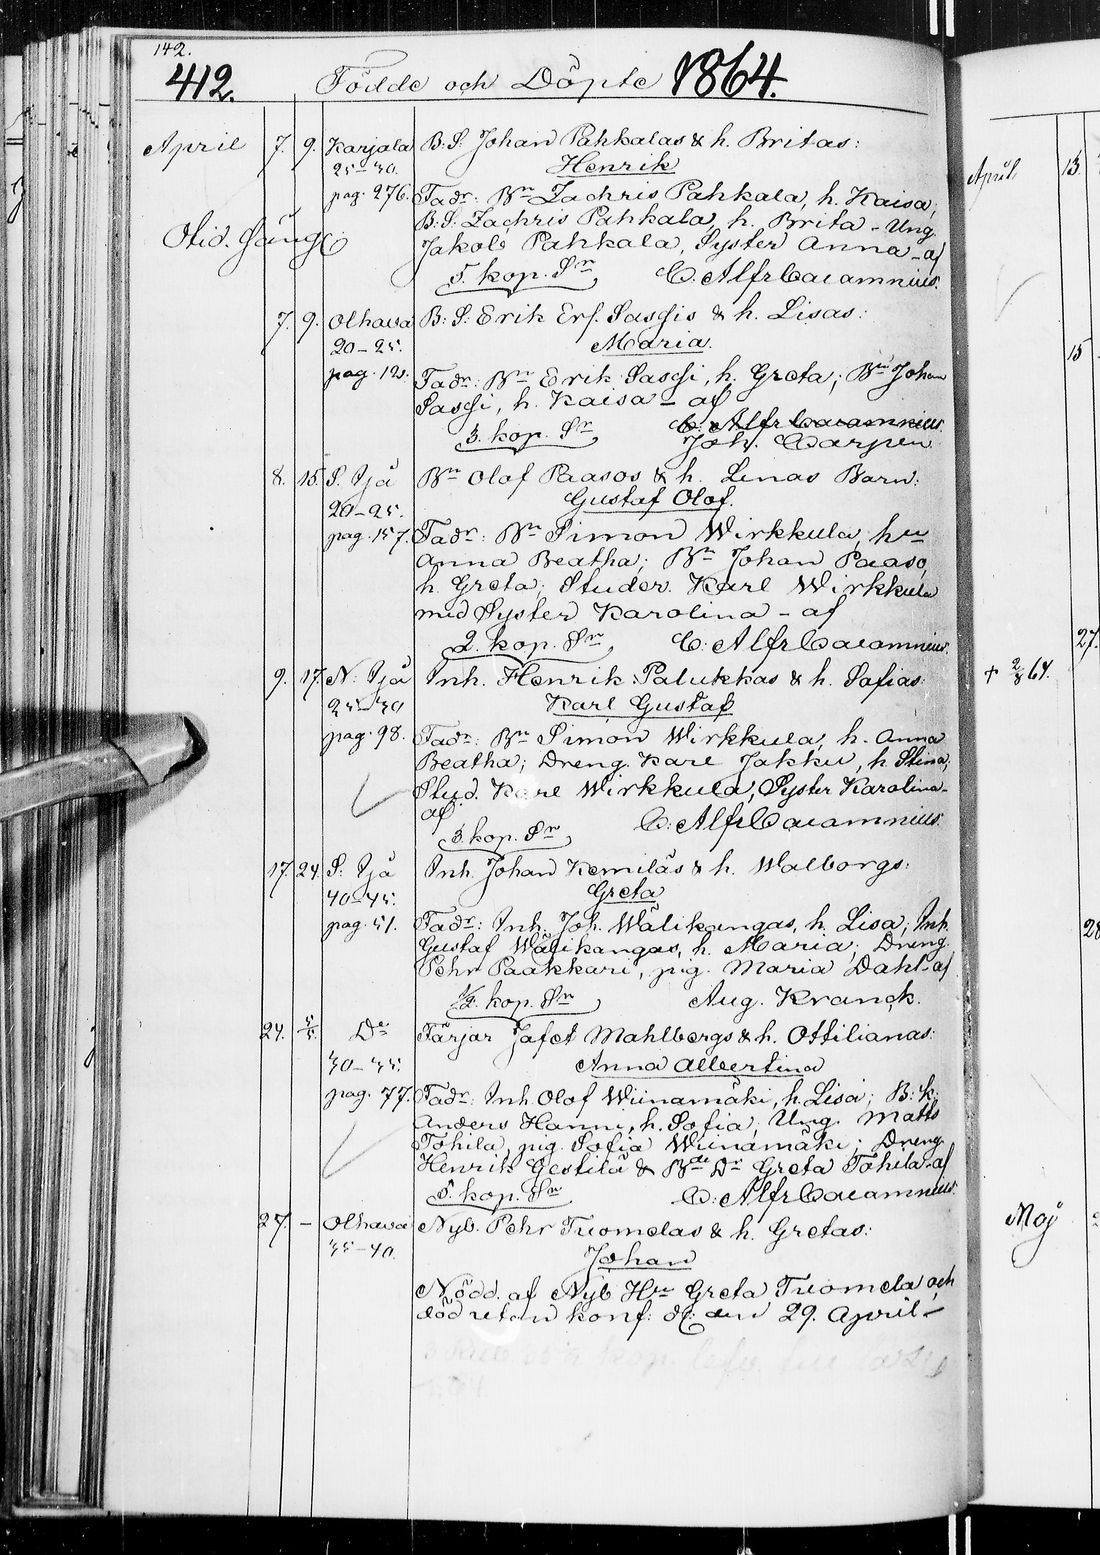 142.
412. Födde och Döpte 1864.
April 7. 9. Karjala B. S. Johan Pahkalas & h. Britas:
25–30. Henrik
pag. 276. Fadr: Bn Zachris Pahkala, h. Kaisa;
B. S. Zachris Pahkala, h. Brita – Ung.
Otid. Säng
Jakob Pahkala, Syster Anna – af
5. kop. Sr C. Alfr Cajamnius.
7. 9. Olhava B: S: Erik Ers. Sassis & h. Lisas:
20–25. Maria.
pag. 121. Fadr: Bn Erik Sassi, h. Greta; Bn Johan
Sassi, h. Kaisa – af
C. Alfr Cajamnius
3. kop. Sr Joh. Carpen.
8. 15. S. Ijå Bn Olof Paasos & h. Lenas Barn:
20–25. Gustaf Olof.
pag. 157. Fadr: Bn Simon Wirkkula, hu
Anna Beatha; Bn Johan Paaso,
h. Greta; Studer. Karl Wirkkula
med Syster Karolina – af
2. kop. Sr C. Alfr Cajamnius.
9. 17. N. Ijå Inh. Henrik Palukkas & h. Sofias:
25–30 Karl Gustaf
pag. 98. Fadr: Bn Simon Wirkkula, h. Anna
Beatha; Dreng. Karl Jakku, h Stina;
Stud. Karl Wirkkula, Syster Karolina –
af
3. kop. Sr C. Alfr Cajamnius.
17. 24. S. Ijå Inh. Johan Kemiläs & h. Walborgs:
40–45. Greta
pag. 51. Fadr: Inh. Joh. Wälikangas, h. Lisa; Inh.
Gustaf Wälikangas, h. Maria; Dreng.
Pehr Paakkari, pig. Maria Dahl – af
1/2. kop. Sr Aug. Kranck.
24. 5/5. Do Färjar Jafet Mahlbergs & h. Ottilianas:
30–35. Anna Albertina
pag. 77. Fadr: Inh Olof Wiinamäki, h. Lisa; B: K:
Anders Hanni, h. Sofia; Ung. Matts
Tohila, pig. Sofia Wiinamäki; Dreng
Henrik Gestilä & Bde Dr Greta Tohila – af
5. kop. Sr C. Alfr Cajamnius.
27. – Olhava Nyb. Pehr Tuomelas & h. Gretas:
35–40. Johan
Nödd. af Nyb. Hu Greta Tuomela och
död utan konf. df. den 29. April –
April 13.
15
27.
+ 2/8 64.
28
Maj